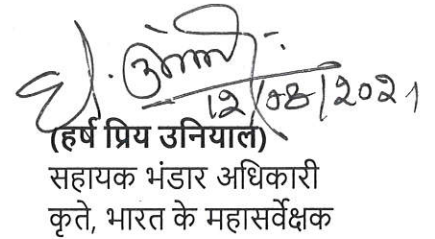 12/08/2021
(हर्ष प्रिय उनियाल)
सहायक भंडार अधिकारी
कृते, भारत के महासर्वेक्षक